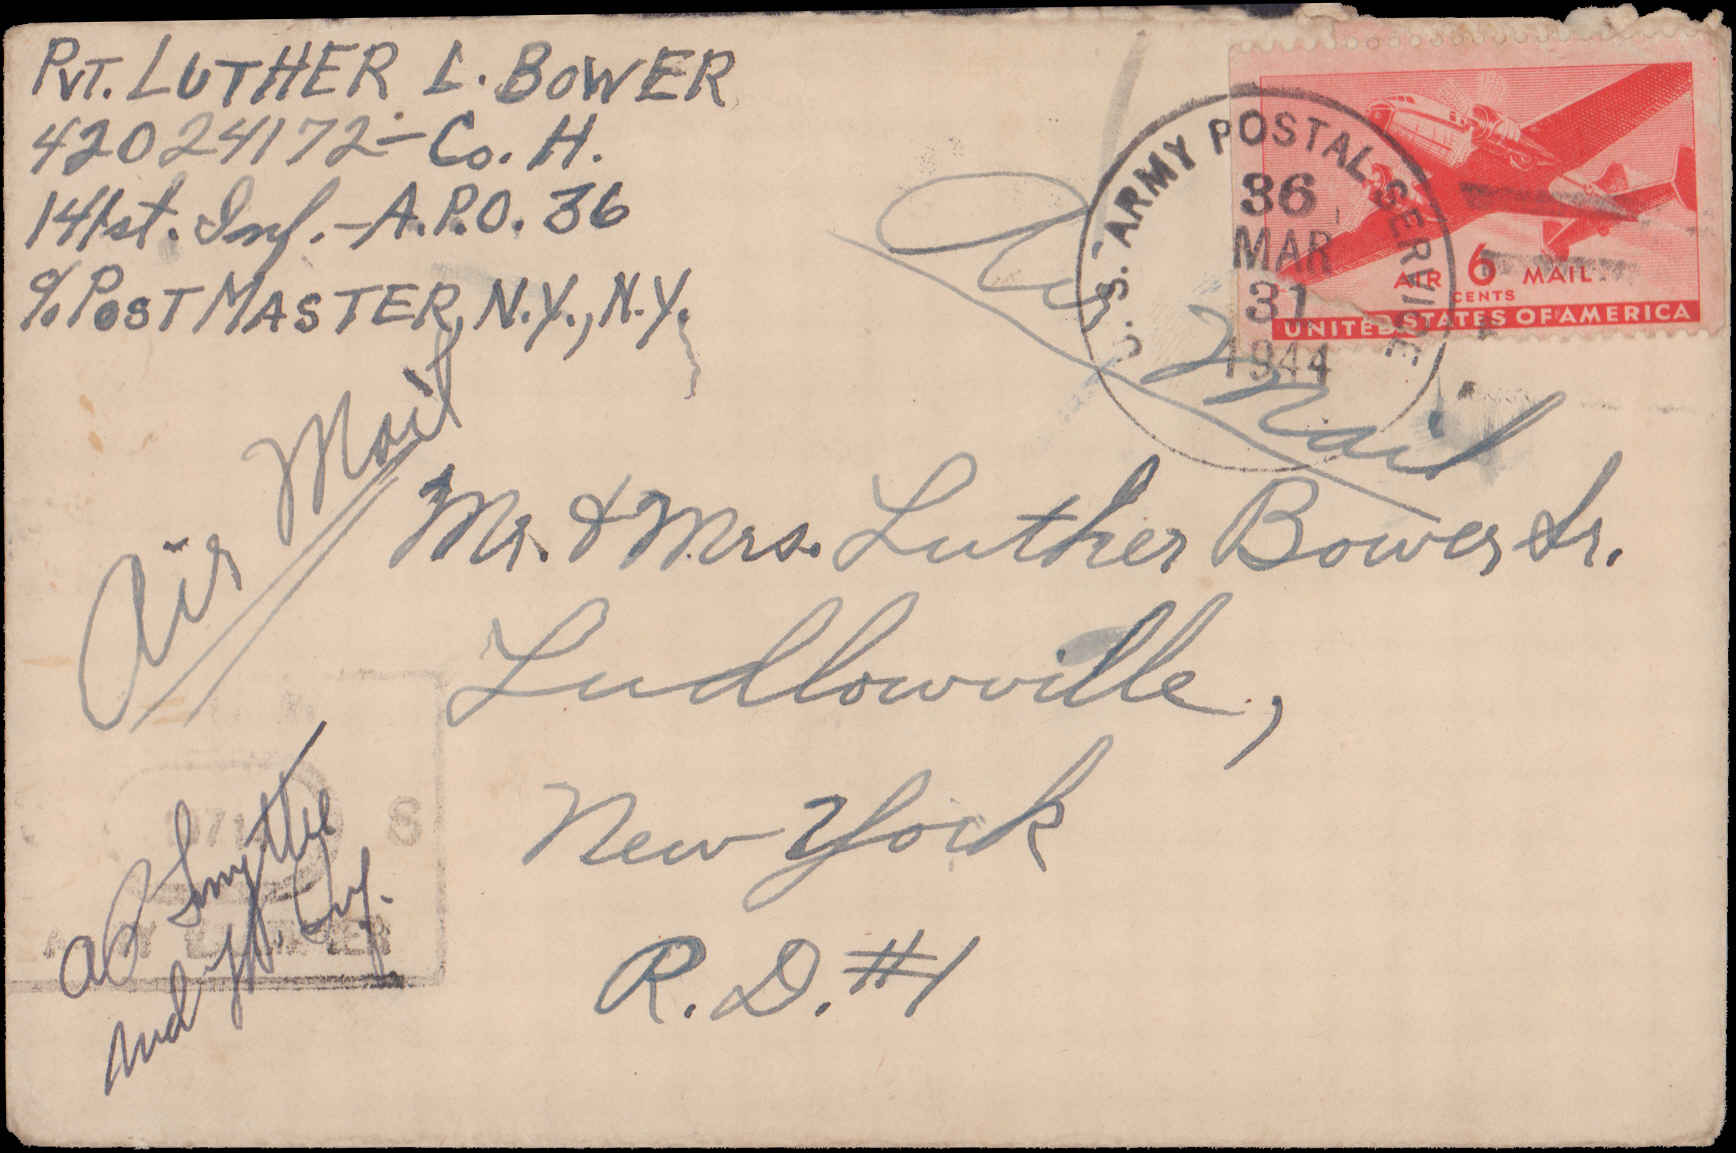 PVT. LUTHER L. BOWER
42024172 - Co. H.
141st. Inf. - A.P.O. 36
℅ POSTMASTER, N.Y., N.Y.
U.S. ARMY POSTAL SERVICE
36
MAR
31
1944
AIR 6 MAIL
CENTS
UNITED STATES OF AMERICA
Air Mail
Air Mail
Mr. & Mrs. Luther Bower Sr.
Ludlowville,
New York
R. D. #1
Smythe
2nd Lt. Inf.
S